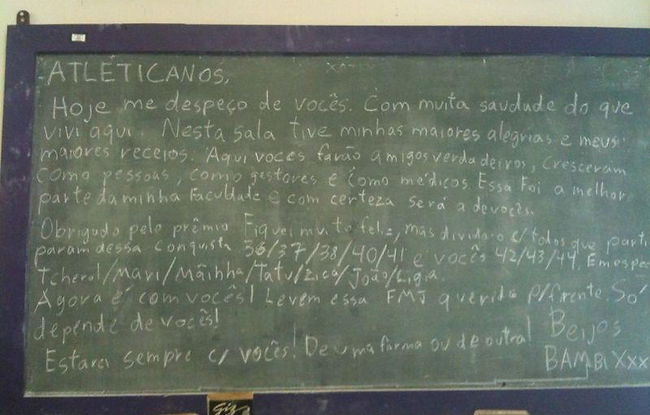 ATLÉTICANOS,
Hoje me despeço de vocês. Com muita saudade do que
vivi aqui. Nesta sala tive minhas maiores alegrias e meus
maiores receios. Aqui voces farão amigos verdadeiros, cresceram
como pessoas, como gestores e como médicos Essa foi a melhor
parte da minha faculdade e com certeza será a de vocês.
Obrigado pelo prêmio Fiquei muito feliz, mas divido c/ todos que parti
param dessa conquista 36/37/38/40/41 e vocês 42/43/44. Em espe
Tcherol/Mari/Mãinha/Tatu/Zica/João/Ligia.
Agora é com vocês! Levem essa FMJ querida p/ frente. Só
depende de vocês!
Estarei sempre c/ vocês! De uma forma ou de outra!
Beijos
BAMBI XXX
Giz